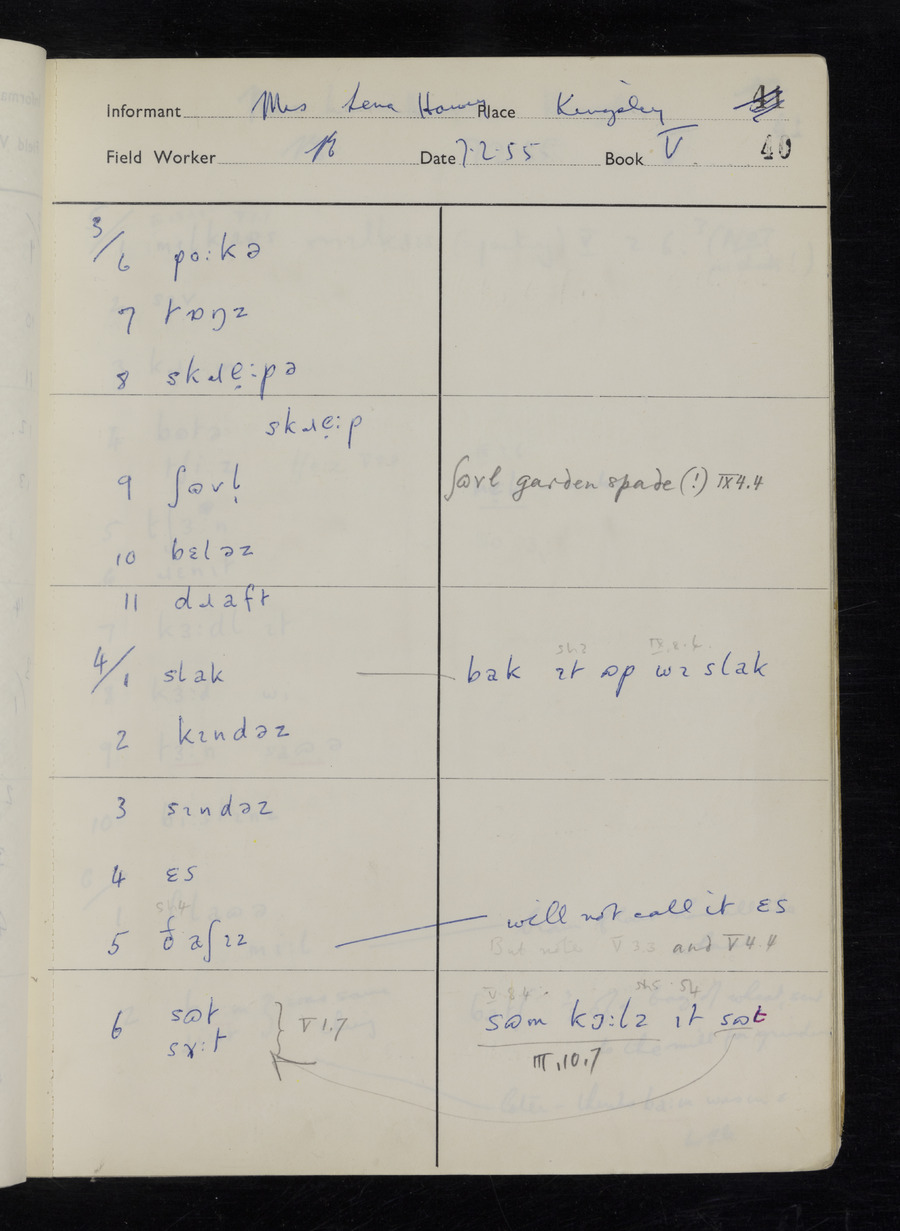 Informant Mrs Lena Place Kingsley 41
Field Worker Date 7.2.55 Book V 40
3/6 poːkə
7 tɒŋz
8 skɹẹːpə
skɹẹːp
9 ʃɷvl̩ ʃɷvl garden spade (!) IX 4.4
10 bɛləz
11 dɹaft
4/1 slak bak ɪt ɷp wɪ slak
2 kɪndəz
3 sɪndəz
4 ɛs
5 ð aʃɪz will not call it ɛs
But note V 3 3 and V 4.4
V 8 4
6 sɷt V 1.7 sɷm kɔːlz ɪt sɷt
sɤːt III.10.7